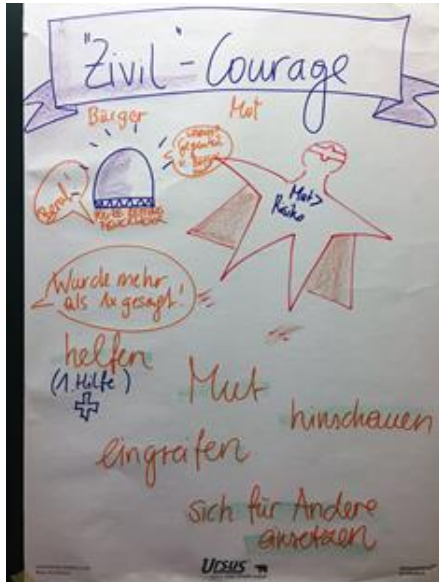 "Zivil"-Courage
Bürger
Mut
Mut>
Risiko
Wurde mehr
als 1x gesagt!
helfen
(1. Hilfe)
Mut
hinschauen
eingreifen
sich für Andere
einsetzen
Ursus